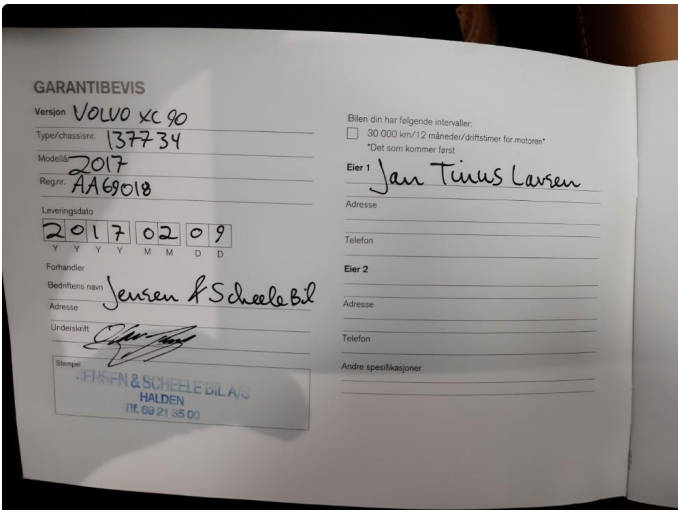 GARANTIBEVIS
Versjon VOLVO XC 90
Type/chassisnr. 137734
Modellår 2017
Reg.nr. AA69018
Leveringsdato
2017 02 09
Y Y Y Y M M D D
Forhandler
Bedriftens navn Jensen & Scheele Bil
Adresse
Underskrift
Stempel
JENSEN & SCHEELE BIL A/S
HALDEN
Tlf. 69 21 35 00
Bilen din har følgende intervaller:
30 000 km/12 måneder/driftstimer for motoren*
*Det som kommer først
Eier 1 Jan Tinius Larsen
Adresse
Telefon
Eier 2
Adresse
Telefon
Andre spesifikasjoner